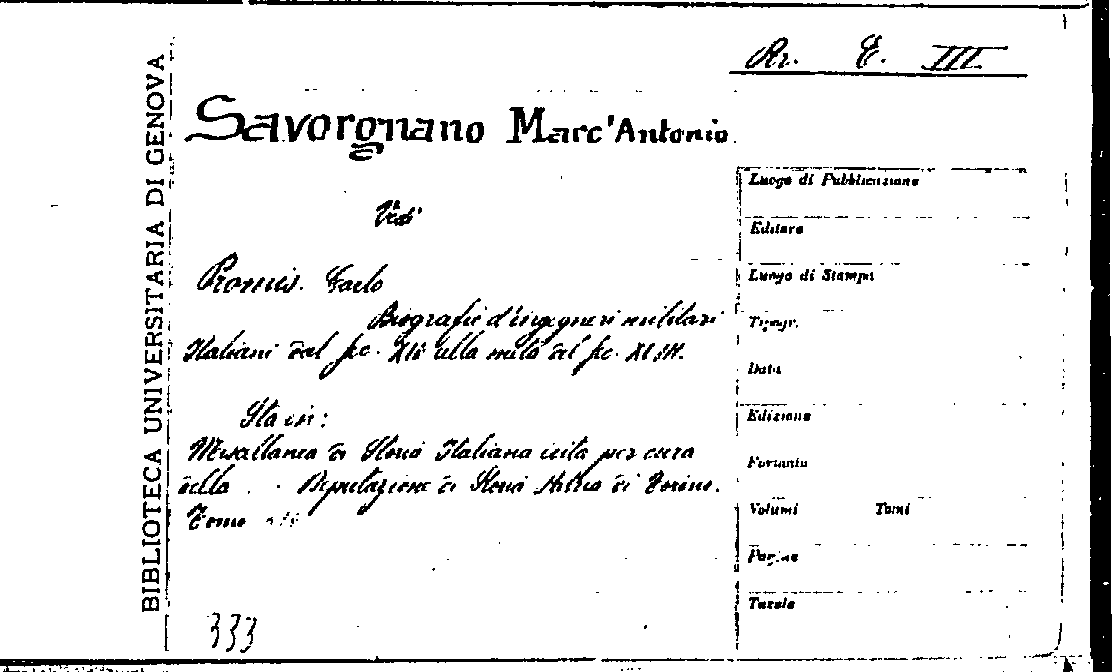 BIBLIOTECA UNIVERSITARIA DI GENOVA
Rr. E. III
Savorgnano Marc'Antonio
Vedi
Promis. Carlo
Biografie d'ingegneri militari
Italiani dal sec. XIV alla metà del sec. XVIII.
Sta in:
Miscellanea di Storia Italiana edita per cura
della Deputazione di Storia Patria di Torino.
Tomo
333
Luogo di Pubblicazione
Editore
Luogo di Stampa
Tipogr.
Data
Edizione
Formato
Volumi Tomi
Pagine
Tavole